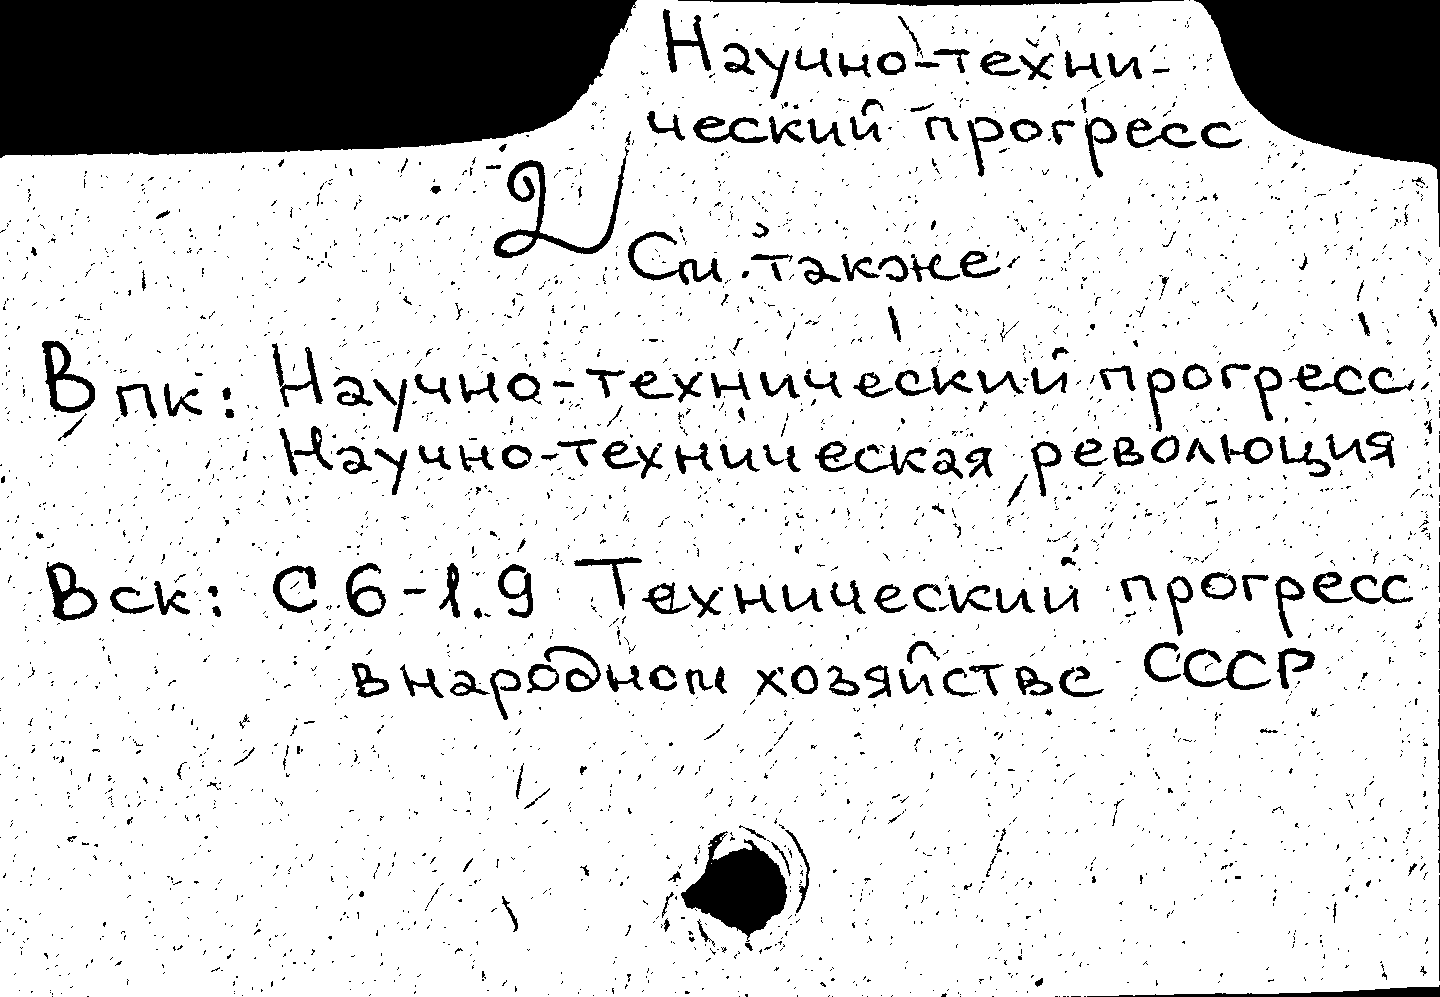 Научно-техни-
ческий прогресс
2
См. также
В пк: Научно-технический прогресс
Научно-техническая революция
В ск: С 6-1.9 Технический прогресс
в народном хозяйстве СССР